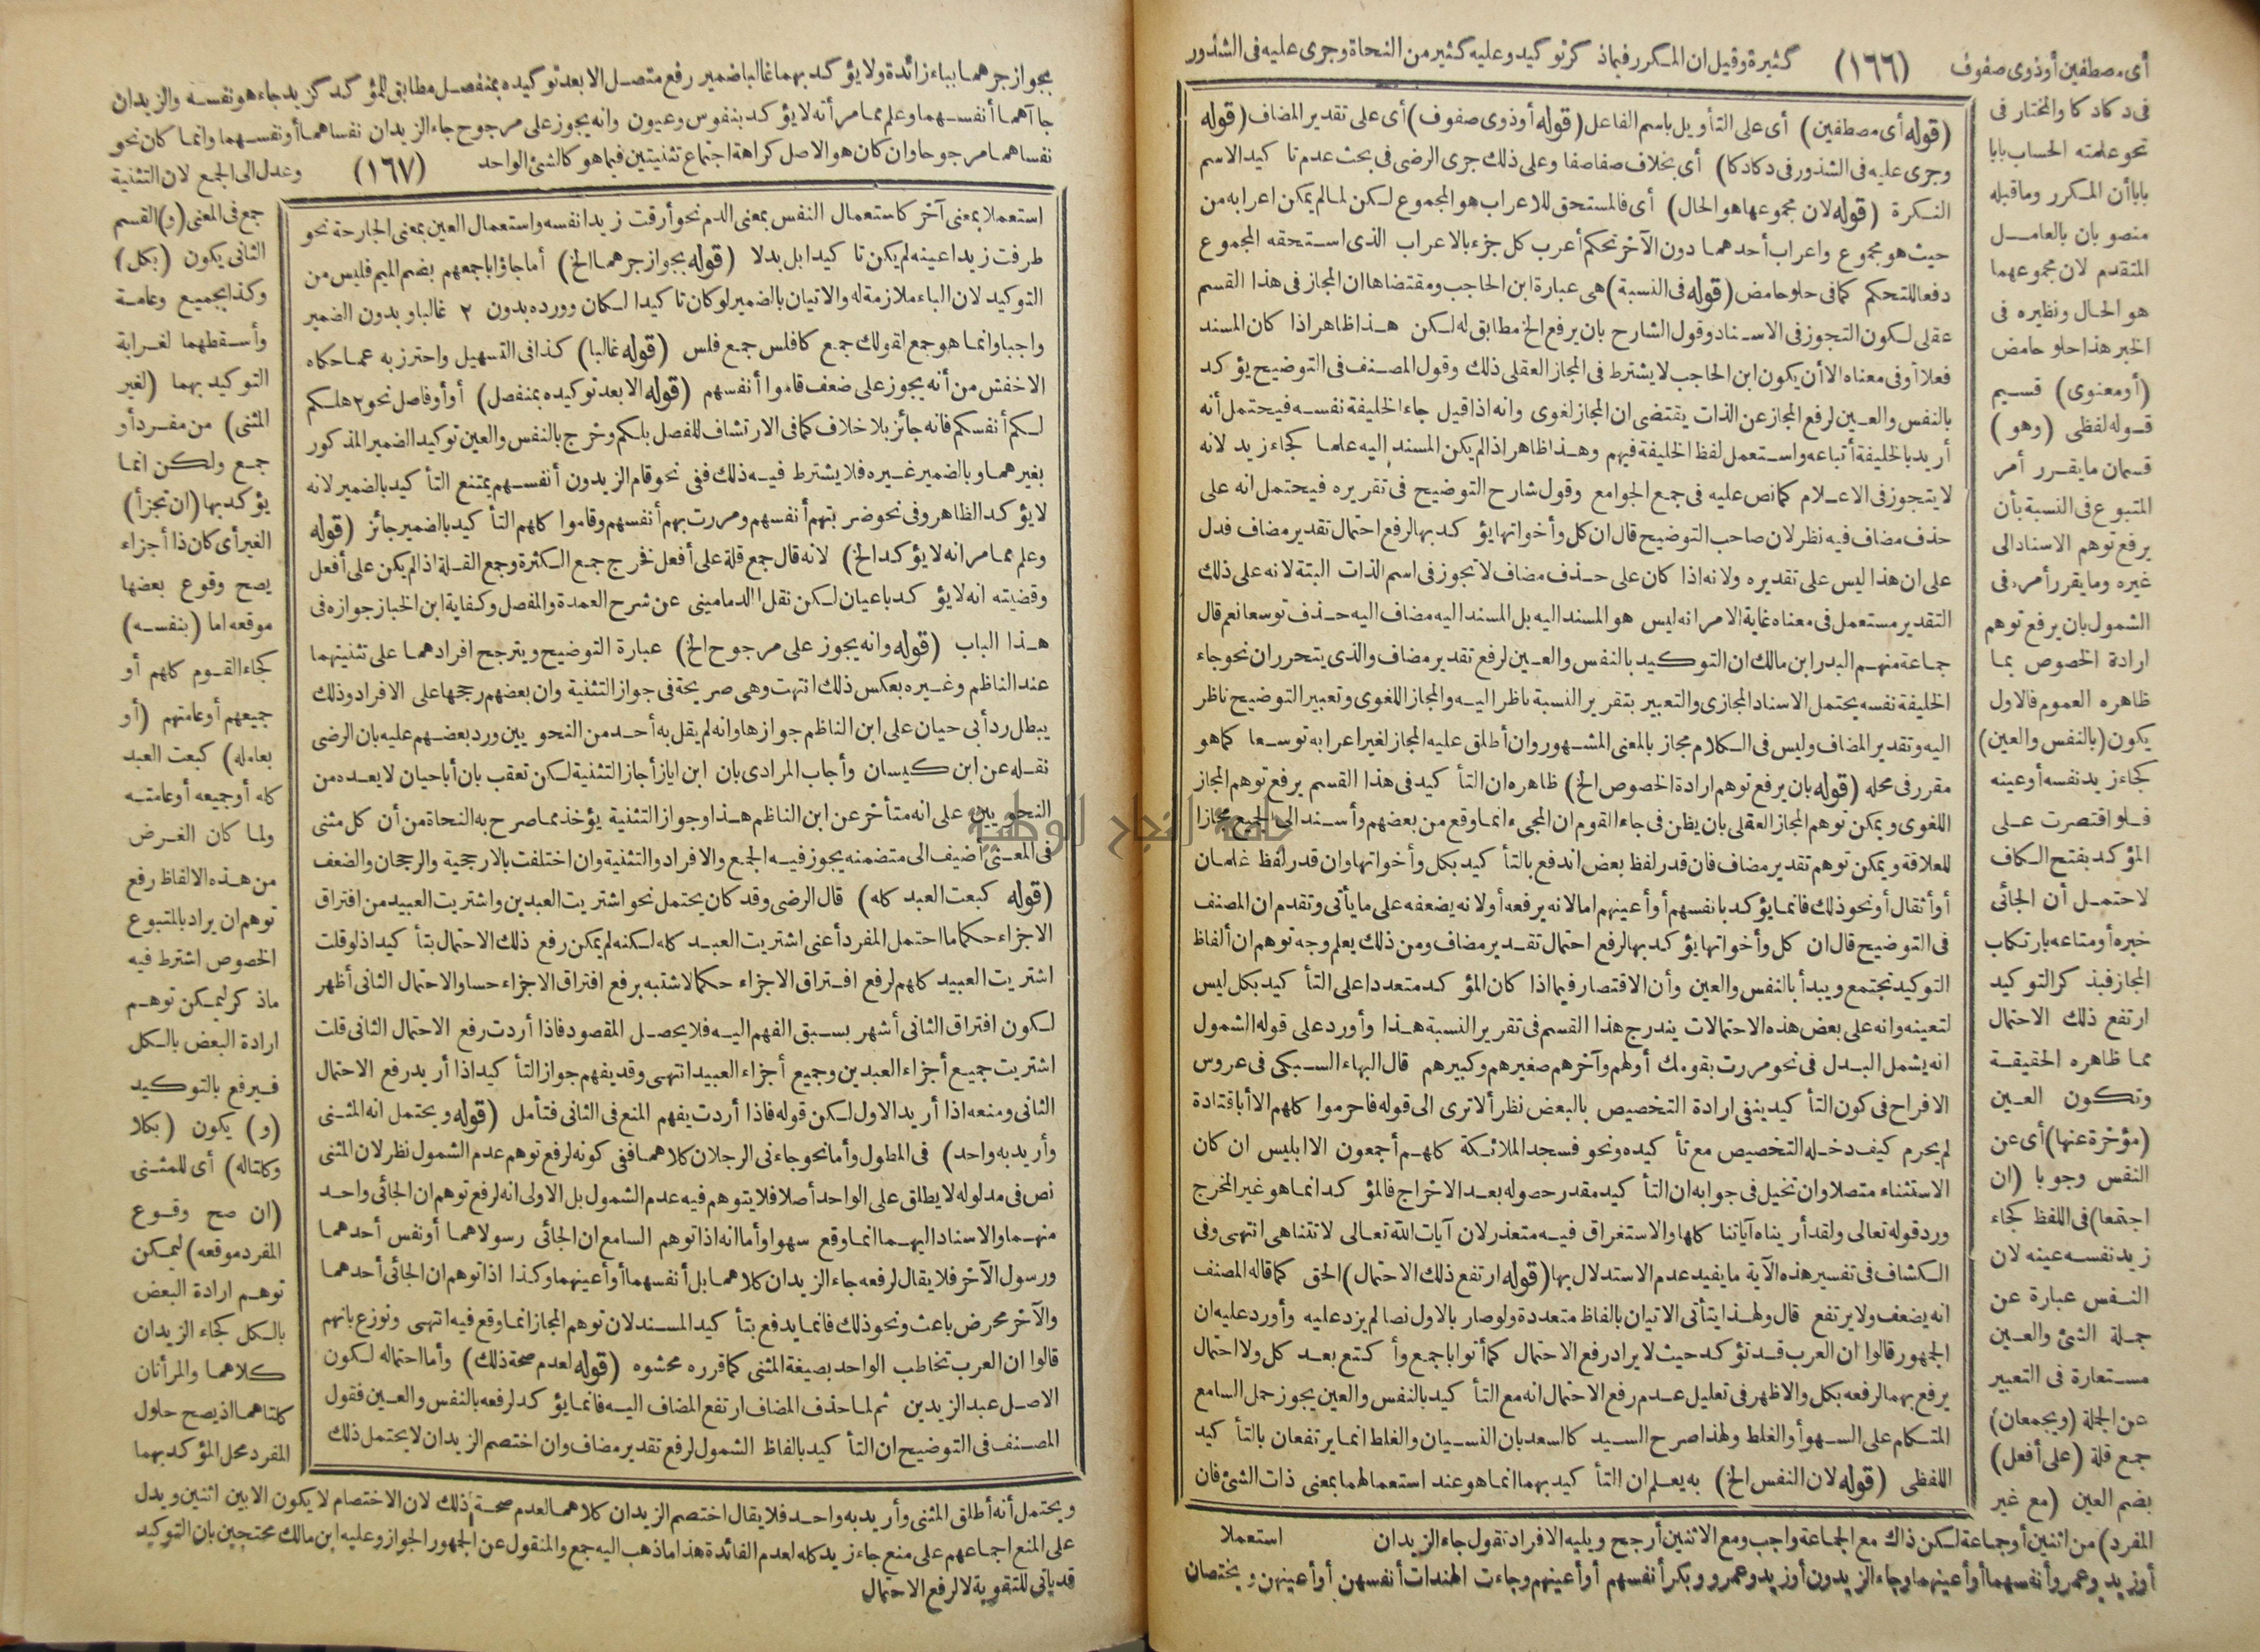 أى مصطفين أو ذوى صفوف (١٦٦) كثيرة وقيل ان المكرر فيما ذكر توكيد وعليه كثير من النحاة وجرى عليه فى الشذور
فى دكادكا والمختار فى
نحو علمته الحساب بابا
بابا أن المكرر وما قبله
منصوبان بالعامل
المتقدم لان مجموعهما
هو الحال ونظيره فى
الخبر هذا حلو حامض
(أو معنوى) قسيم
قوله لفظى (وهو)
قسمان ما يقرر أمر
المتبوع فى النسبة بأن
يرفع توهم الاسناد الى
غيره وما يقرر أمره فى
الشمول بان يرفع توهم
ارادة الخصوص بما
ظاهره العموم فالاول
يكون (بالنفس والعين)
كجاء زيد نفسه أو عينه
فلو اقتصرت على
المؤكد بفتح الكاف
لاحتمل أن الجائى
خبره أو متاعه بارتكاب
المجاز فبذكر التوكيد
ارتفع ذلك الاحتمال
مما ظاهره الحقيقة
وتكون العين
(مؤخرة عنها) أى عن
النفس وجوبا (ان
اجتمعا) فى اللفظ كجاء
زيد نفسه عينه لان
النفس عبارة عن
جملة الشئ والعين
مستعارة فى التعبير
عن الجملة (ويجمعان)
جمع قلة (على أفعل)
بضم العين (مع غير
(قوله أى مصطفين) أى على التأويل باسم الفاعل (قوله أو ذوى صفوف) أى على تقدير المضاف (قوله
وجرى عليه فى الشذور فى دكادكا) أى بخلاف صفا صفا وعلى ذلك جرى الرضى فى بحث عدم تاكيد الاسم
النكرة (قوله لان مجموعها هو الحال) أى فالمستحق للاعراب هو المجموع لكن لما لم يمكن اعرابه من
حيث هو مجموع واعراب أحدهما دون الآخر تحكم أعرب كل جزء بالاعراب الذى استحقه المجموع
دفعا للتحكم كما فى حلو حامض (قوله فى النسبة) هى عبارة ابن الحاجب ومقتضاها ان المجاز فى هذا القسم
عقلى لكون التجوز فى الاسناد وقول الشارح بان يرفع الخ مطابق له لكن هذا ظاهر اذا كان المسند
فعلا أو فى معناه الا أن يكون ابن الحاجب لا يشترط فى المجاز العقلى ذلك وقول المصنف فى التوضيح يؤكد
بالنفس والعين لرفع المجاز عن الذات يقتضى ان المجاز لغوى وانه اذا قيل جاء الخليفة نفسه فيحتمل أنه
أريد بالخليفة أتباعه واستعمل لفظ الخليفة فيهم وهذا ظاهر اذا لم يكن المسند اليه علما كجاء زيد لانه
لا يتجوز فى الاعلام كما نص عليه فى جمع الجوامع وقول شارح التوضيح فى تقريره فيحتمل انه على
حذف مضاف فيه نظر لان صاحب التوضيح قال ان كل وأخواتها يؤكد بها لرفع احتمال تقدير مضاف فدل
على ان هذا ليس على تقديره ولانه اذا كان على حذف مضاف لا تجوز فى اسم الذات البتة لانه على ذلك
التقدير مستعمل فى معناه غاية الامر انه ليس هو المسند اليه بل المسند اليه مضاف اليه حذف توسعا نعم قال
جماعة منهم البدر ابن مالك ان التوكيد بالنفس والعين لرفع تقدير مضاف والذى يتحرر ان نحو جاء
الخليفة نفسه يحتمل الاسناد المجازى والتعبير بتقرير النسبة ناظر اليه والمجاز اللغوى وتعبير التوضيح ناظر
اليه وتقدير المضاف وليس فى الكلام مجاز بالمعنى المشهور وان أطلق عليه المجاز لغير اعرابه توسعا كما هو
مقرر فى محله (قوله بان يرفع توهم ارادة الخصوص الخ) ظاهره ان التأكيد فى هذا القسم يرفع توهم المجاز
اللغوى ويمكن توهم المجاز العقلى بان يظن فى جاء القوم ان المجىء انما وقع من بعضهم وأسند الى الجميع مجازا
للعلاقة ويمكن توهم تقدير مضاف فان قدر لفظ بعض اندفع بالتأكيد بكل وأخواتها وان قدر لفظ غلمان
أو أثقال أو نحو ذلك فانما يؤكد بانفسهم أو أعينهم اما لانه يرفعه أو لانه يضعفه على ما يأتى وتقدم ان المصنف
فى التوضيح قال ان كل وأخواتها يؤكد بها لرفع احتمال تقدير مضاف ومن ذلك يعلم وجه توهم ان ألفاظ
التوكيد تجتمع ويبدأ بالنفس والعين وأن الاقتصار فيما اذا كان المؤكد متعددا على التأكيد بكل ليس
لتعينه وانه على بعض هذه الاحتمالات يندرج هذا القسم فى تقرير النسبة هذا وأورد على قوله الشمول
انه يشمل البدل فى نحو مررت بقومك أولهم وآخرهم صغيرهم وكبيرهم قال البهاء السبكى فى عروس
الافراح فى كون التأكيد ينفى ارادة التخصيص بالبعض نظر ألا ترى الى قوله فاحرموا كلهم الا أبا قتادة
لم يحرم كيف دخله التخصيص مع تأكيده ونحو فسجد الملائكة كلهم أجمعون الا ابليس ان كان
الاستثناء متصلا وان تخيل فى جوابه ان التأكيد مقدر حصوله بعد الاخراج فالمؤكد انما هو غير المخرج
ورد قوله تعالى ولقد أريناه آياتنا كلها والاستغراق فيه متعذر لان آيات الله تعالى لا تتناهى انتهى وفى
الكشاف فى تفسير هذه الآية ما يفيد عدم الاستدلال بها (قوله ارتفع ذلك الاحتمال) الحق كما قاله المصنف
انه يضعف ولا يرتفع قال ولهذا يتأتى الاتيان بالفاظ متعددة ولو صار بالاول نصا لم يزد عليه وأورد عليه ان
الجمهور قالوا ان العرب قد تؤكد حيث لا يراد رفع الاحتمال كما أتوا باجمع وأكتع بعد كل ولا احتمال
يرفع بهما لرفعه بكل والاظهر فى تعليل عدم رفع الاحتمال انه مع التأكيد بالنفس والعين يجوز حمل السامع
المتكلم على السهو أو الغلط ولهذا صرح السيد كالسعد بان النسيان والغلط انما يرتفعان بالتأكيد
اللفظى (قوله لان النفس الخ) به يعلم ان التأكيد بهما انما هو عند استعمالهما بمعنى ذات الشئ فان
المفرد) من اثنين أو جماعة لكن ذاك مع الجماعة واجب ومع الاثنين أرجح ويليه الافراد تقول جاء الزيدان استعملا
أو زيد وعمرو أنفسهما أو أعينهما وجاء الزيدون أو زيد وعمرو وبكر أنفسهم أو أعينهم وجاءت الهندات أنفسهن أو أعينهن ويختصان
بجواز جرهما بباء زائدة ولا يؤكد بهما غالبا ضمير رفع متصل الا بعد توكيده بمنفصل مطابق للمؤكد كزيد جاء هو نفسه والزيدان
جاآ هما أنفسهما وعلم مما مر أنه لا يؤكد بنفوس وعيون وانه يجوز على مرجوح جاء الزيدان نفساهما أو نفسهما وانما كان نحو
نفساهما مرجوحا وان كان هو الاصل كراهة اجتماع تثنيتين فيما هو كالشئ الواحد (١٦٧) وعدل الى الجمع لان التثنية
استعملا بمعنى آخر كاستعمال النفس بمعنى الدم نحو أرقت زيدا نفسه واستعمال العين بمعنى الجارحة نحو
طرفت زيدا عينه لم يكن تاكيدا بل بدلا (قوله بجواز جرهما الخ) أما جاؤا باجمعهم بضم الميم فليس من
التوكيد لان الباء ملازمة له والاتيان بالضمير لو كان تاكيدا لكان وروده بدون ٢ غالبا وبدون الضمير
واجبا وانما هو جمع لقولك جمع كافلس جمع فلس (قوله غالبا) كذا فى التسهيل واحترز به عما حكاه
الاخفش من أنه يجوز على ضعف قاموا أنفسهم (قوله الا بعد توكيده بمنفصل) أو أو فاصل نحو ٣ هلكم
لكم أنفسكم فانه جائز بلا خلاف كما فى الارتشاف للفصل بلكم وخرج بالنفس والعين توكيد الضمير المذكور
بغيرهما وبالضمير غيره فلا يشترط فيه ذلك ففى نحو قام الزيدون أنفسهم يمتنع التأكيد بالضمير لانه
لا يؤكد الظاهر وفى نحو ضربتهم أنفسهم ومررت بهم أنفسهم وقاموا كلهم التأكيد بالضمير جائز (قوله
وعلم مما مر انه لا يؤكد الخ) لانه قال جمع قلة على أفعل فخرج جمع الكثرة وجمع القلة اذا لم يكن على أفعل
وقضيته انه لا يؤكد باعيان لكن نقل الدمامينى عن شرح العمدة والمفصل وكفاية ابن الخباز جوازه فى
هذا الباب (قوله وانه يجوز على مرجوح الخ) عبارة التوضيح ويترجح افرادهما على تثنيتهما
عند الناظم وغيره بعكس ذلك انتهت وهى صريحة فى جواز التثنية وان بعضهم رجحها على الافراد وذلك
يبطل رد أبى حيان على ابن الناظم جوازها وانه لم يقل به أحد من النحويين ورد بعضهم عليه بان الرضى
نقله عن ابن كيسان وأجاب المرادى بان ابن اياز أجاز التثنية لكن تعقب بان أبا حيان لا يعده من
النحويين على انه متأخر عن ابن الناظم هذا وجواز التثنية يؤخذ مما صرح به النحاة من أن كل مثنى
فى المعنى أضيف الى متضمنه يجوز فيه الجمع والافراد والتثنية وان اختلفت بالارجحية والرجحان والضعف
(قوله كبعت العبد كله) قال الرضى وقد كان يحتمل نحو اشتريت العبدين واشتريت العبيد من افتراق
الاجزاء حكما ما احتمل المفرد أعنى اشتريت العبد كله لكنه لم يمكن رفع ذلك الاحتمال بتأكيد اذ لو قلت
اشتريت العبيد كلهم لرفع افتراق الاجزاء حكما لاشتبه برفع افتراق الاجزاء حسا والاحتمال الثانى أظهر
لكون افتراق الثانى أشهر بسبق الفهم اليه فلا يحصل المقصود فاذا أردت رفع الاحتمال الثانى قلت
اشتريت جميع أجزاء العبدين وجميع أجزاء العبيد انتهى وقد يفهم جواز التأكيد اذا أريد رفع الاحتمال
الثانى ومنعه اذا أريد الاول لكن قوله فاذا أردت يفهم المنع فى الثانى فتأمل (قوله ويحتمل انه المثنى
وأريد به واحد) فى المطول وأما نحو جاءنى الرجلان كلاهما ففى كونه لرفع توهم عدم الشمول نظر لان المثنى
نص فى مدلوله لا يطلق على الواحد أصلا فلا يتوهم فيه عدم الشمول بل الاولى انه لرفع توهم ان الجائى واحد
منهما والاسناد اليهما انما وقع سهوا وأما انه اذا توهم السامع ان الجائى رسولا هما أو نفس أحدهما
ورسول الآخر فلا يقال لرفعه جاء الزيدان كلاهما بل أنفسهما أو أعينهما وكذا اذا توهم ان الجائى أحدهما
والآخر محرض باعث ونحو ذلك فانما يدفع بتأكيد المسند لان توهم المجاز انما وقع فيه انتهى ونوزع بانهم
قالوا ان العرب تخاطب الواحد بصيغة المثنى كما قرره محشوه (قوله لعدم صحة ذلك) وأما احتماله لكون
الاصل عبد الزيدين ثم لما حذف المضاف ارتفع المضاف اليه فانما يؤكد لرفعه بالنفس والعين فقول
المصنف فى التوضيح ان التأكيد بالفاظ الشمول لرفع تقدير مضاف وان اختصم الزيدان لا يحتمل ذلك
جمع فى المعنى (و) القسم
الثانى يكون (بكل)
وكذا بجميع وعامة
وأسقطهما لغرابة
التوكيد بهما (لغير
المثنى) من مفرد أو
جمع ولكن انما
يؤكد بها (ان تجزأ)
الغير أى كان ذا أجزاء
يصح وقوع بعضها
موقعه اما (بنفسه)
كجاء القوم كلهم أو
جميعهم أو عامتهم (أو
بعامله) كبعت العبد
كله أو جميعه أو عامته
ولما كان الغرض
من هذه الالفاظ رفع
توهم ان يراد بالمتبوع
الخصوص اشترط فيه
ما ذكر ليمكن توهم
ارادة البعض بالكل
فيرفع بالتوكيد
(و) يكون (بكلا
وكلتا له) أى للمثنى
(ان صح وقوع
المفرد موقعه) ليمكن
توهم ارادة البعض
بالكل كجاء الزيدان
كلاهما والمرأتان
كلتاهما اذ يصح حلول
المفرد محل المؤكد بهما
ويحتمل أنه أطلق المثنى وأريد به واحد فلا يقال اختصم الزيدان كلاهما لعدم صحة ذلك لان الاختصام لا يكون الا بين اثنين ويدل
على المنع اجماعهم على منع جاء زيد كله لعدم الفائدة هذا ما ذهب اليه جمع والمنقول عن الجمهور الجواز وعليه ابن مالك محتجين بان التوكيد
قد يأتى للتقوية لا لرفع الاحتمال